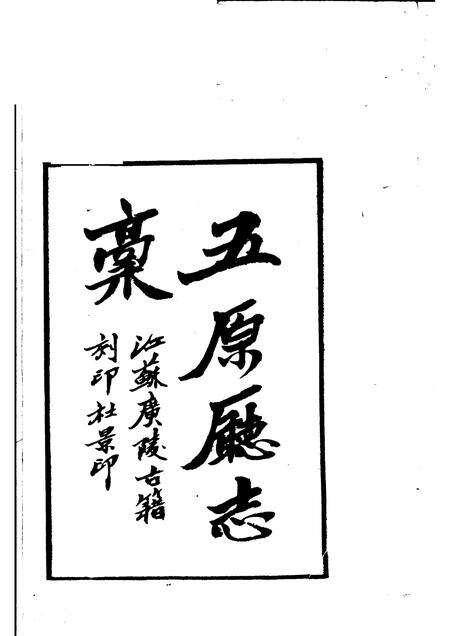 五原厅志
稾
江蘇廣陵古籍
刻印社景印